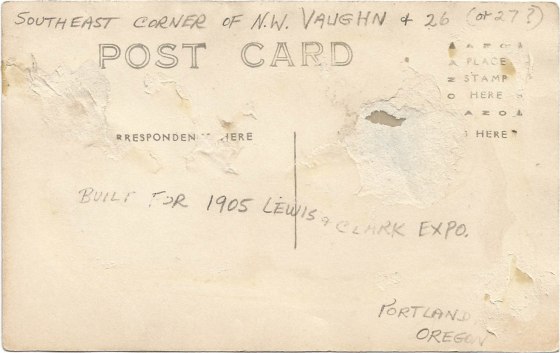 SOUTHEAST CORNER OF N.W. VAUGHN & 26 (or 27?)
POST CARD
PLACE
STAMP
HERE
AZO
RRESPONDEN HERE
S HERE
BUILT FOR 1905 LEWIS & CLARK EXPO.
PORTLAND
OREGON